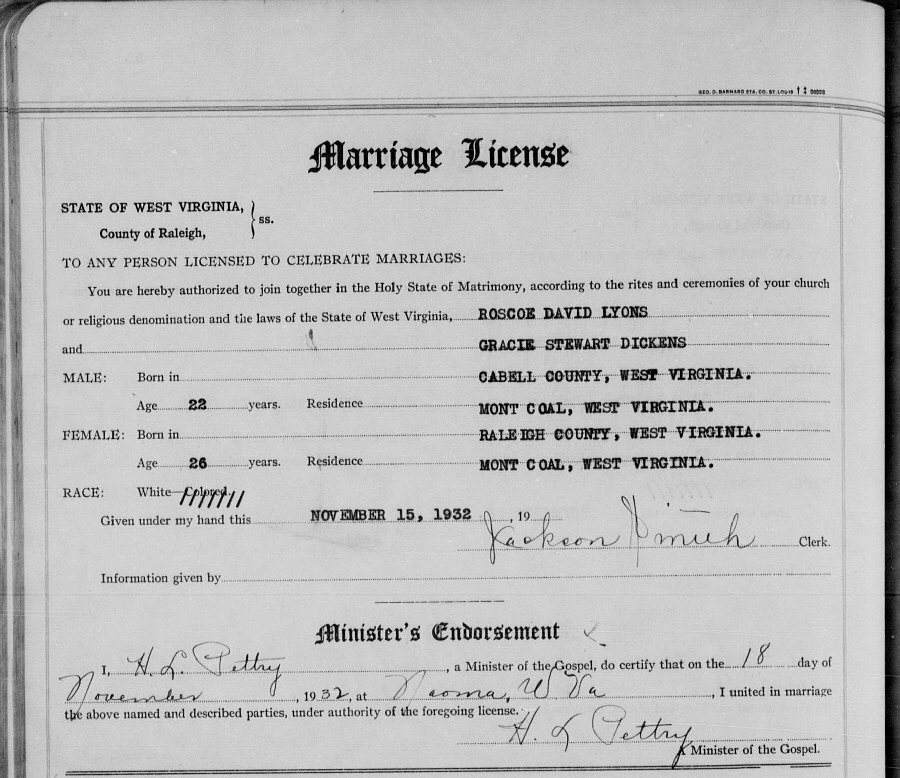 GEO. D. BARNARD STA. CO. ST. LOUIS
Marriage License
STATE OF WEST VIRGINIA,
County of Raleigh,
} ss.
TO ANY PERSON LICENSED TO CELEBRATE MARRIAGES:
You are hereby authorized to join together in the Holy State of Matrimony, according to the rites and ceremonies of your church
or religious denomination and the laws of the State of West Virginia, ROSCOE DAVID LYONS
and GRACIE STEWART DICKENS
MALE: Born in CABELL COUNTY, WEST VIRGINIA.
Age 22 years. Residence MONT COAL, WEST VIRGINIA.
FEMALE: Born in RALEIGH COUNTY, WEST VIRGINIA.
Age 26 years. Residence MONT COAL, WEST VIRGINIA.
RACE: White—Colored
Given under my hand this NOVEMBER 15, 1932, 19
Jackson Smith Clerk.
Information given by
Minister's Endorsement
I, H. L. Pettry, a Minister of the Gospel, do certify that on the 18 day of
November, 1932, at Naoma, W Va, I united in marriage
the above named and described parties, under authority of the foregoing license.
H. L Pettry
A Minister of the Gospel.